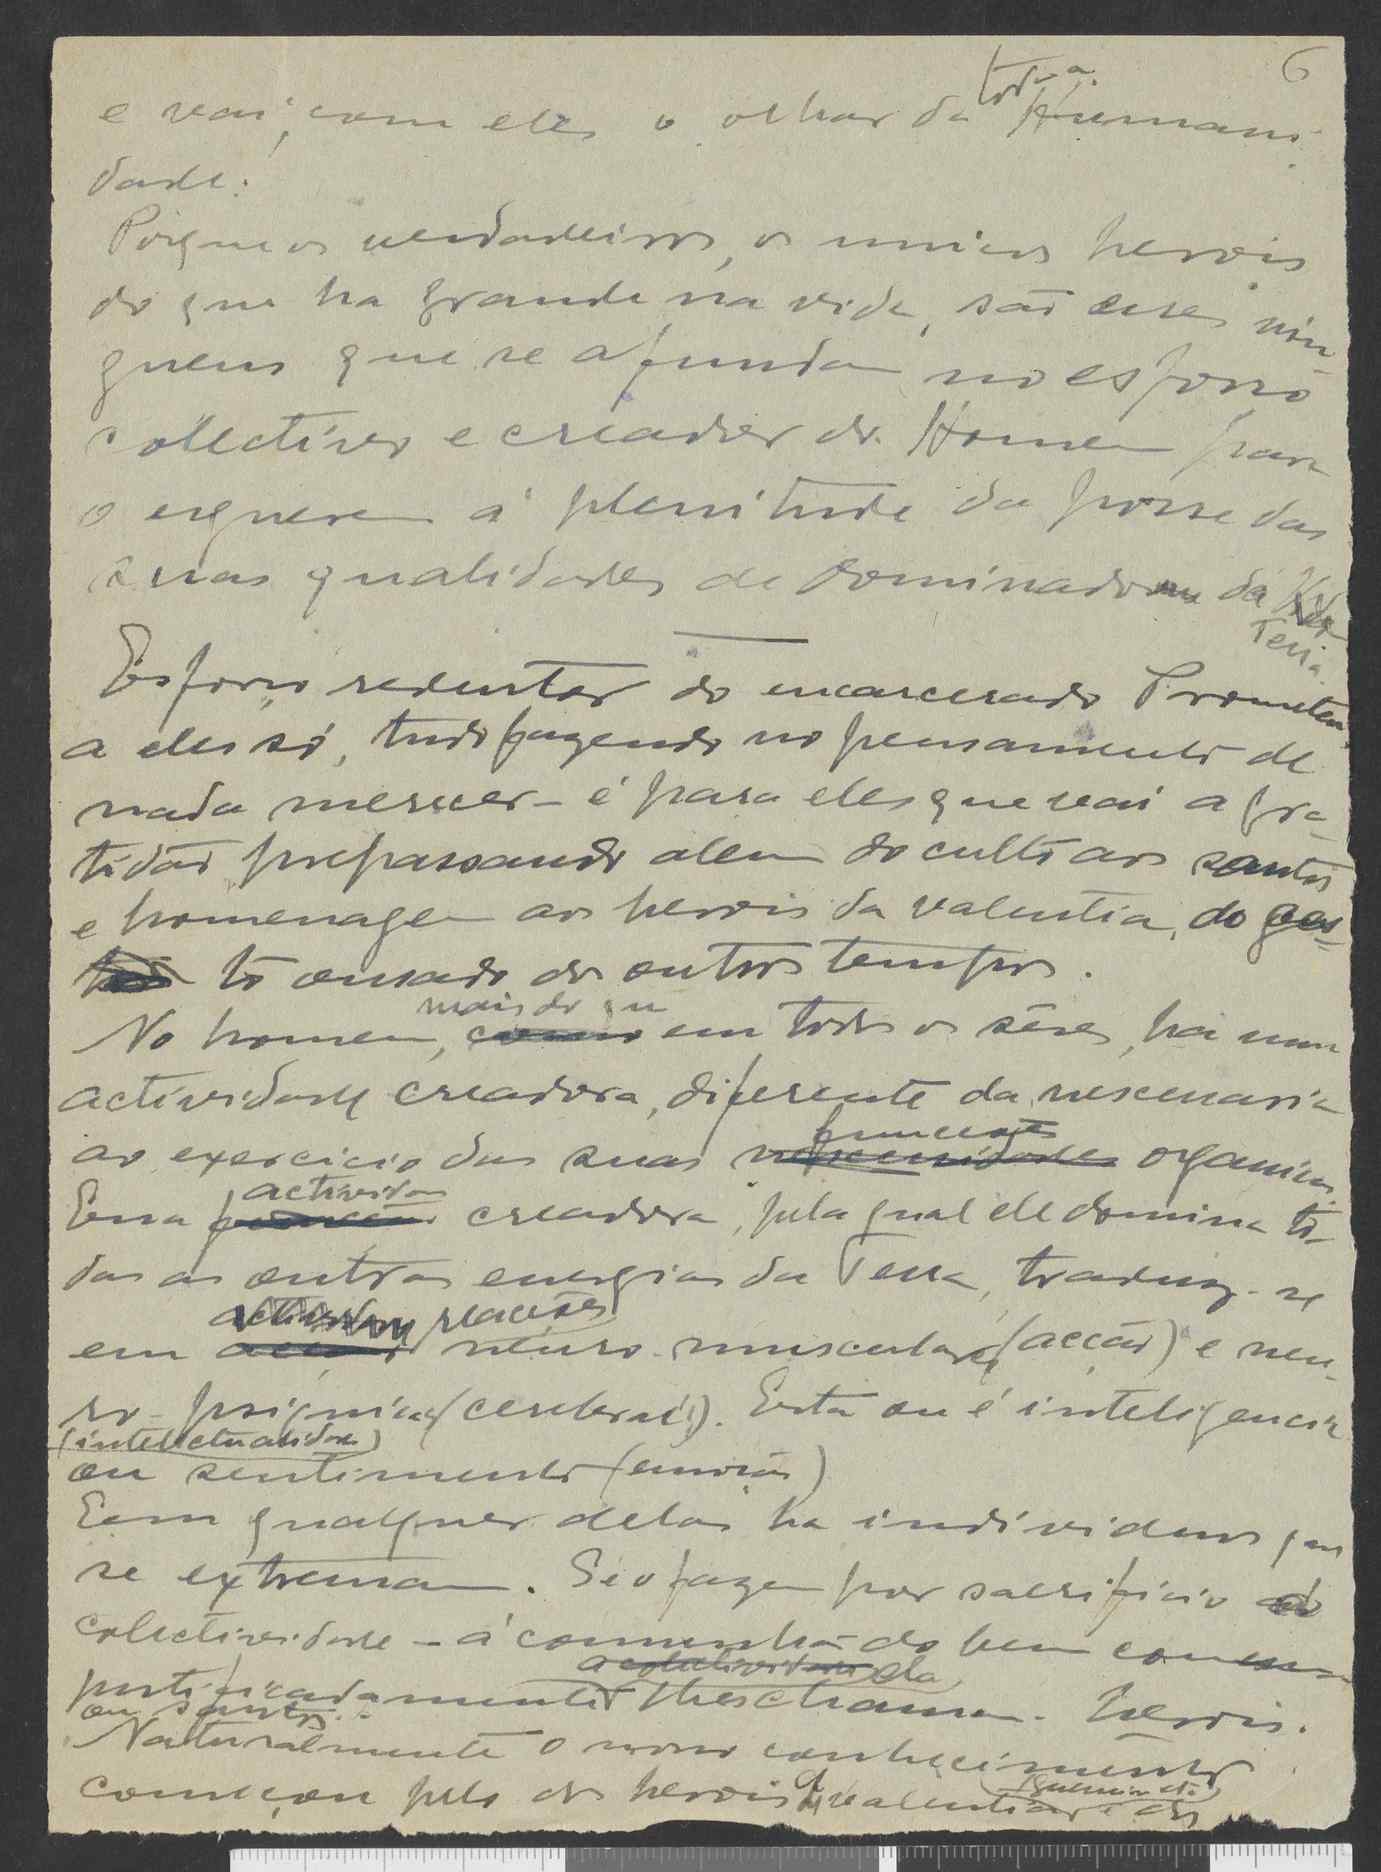 6
toda a
e vai, com eles o olhar da Humani
dade.
Porque os verdadeiros, os unicos herois
do que ha grande na vida, são esses nin
guens que se afundam no esforço
collectivo e creador do Homem para
o erguerem á plenitude da posse das
suas qualidades de dominadores da Vida
Terra.
Esforço redentor do encarcerado Prometeu,
a eles só, tudo fazendo no pensamento de
nada merecer - é para eles que vai a gra-
tidão prepassando alem do culto aos santos
e homenagem aos herois da valentia, do ges-
to ousado dos outros tempos.
mais do que
No homem, como em todos os sêres, ha uma
actividade creadora, diferente da nescessaria
funcções
ao exercicio das suas nescessidades organicas.
actividade
Essa funcção creadora, pela qual ele domina to-
das as outras energias da Terra, traduz-se
actividades reacções
em neuro-musculares (acção) e neu-
ro-psiquicas (cerebrais). Esta ou é inteligencia
(intelectualidade)
ou sentimento (emoção)
E em qualquer delas ha individuos que
se extremam. Se o fazem por sacrificio
colectividade - á comunhão do bem comum
a colectividade da
justificadamente lhes chamam herois.
ou santos.
Naturalmente o nosso conhecimento
começou pelo dos herois da valentia